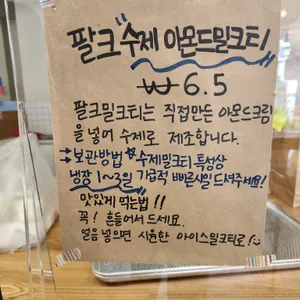 팔크 "수제 아몬드밀크티"
₩ 6.5
팔크밀크티는 직접만든 아몬드크림
을 넣어 수제로 제조합니다.
→보관방법 ☆ 수제밀크티 특성상
냉장 1~3일 가급적 빠른시일 드셔주세요!
맛있게 먹는법!!
꼭! 흔들어서 드세요.
얼음 넣으면 시원한 아이스밀크티로!